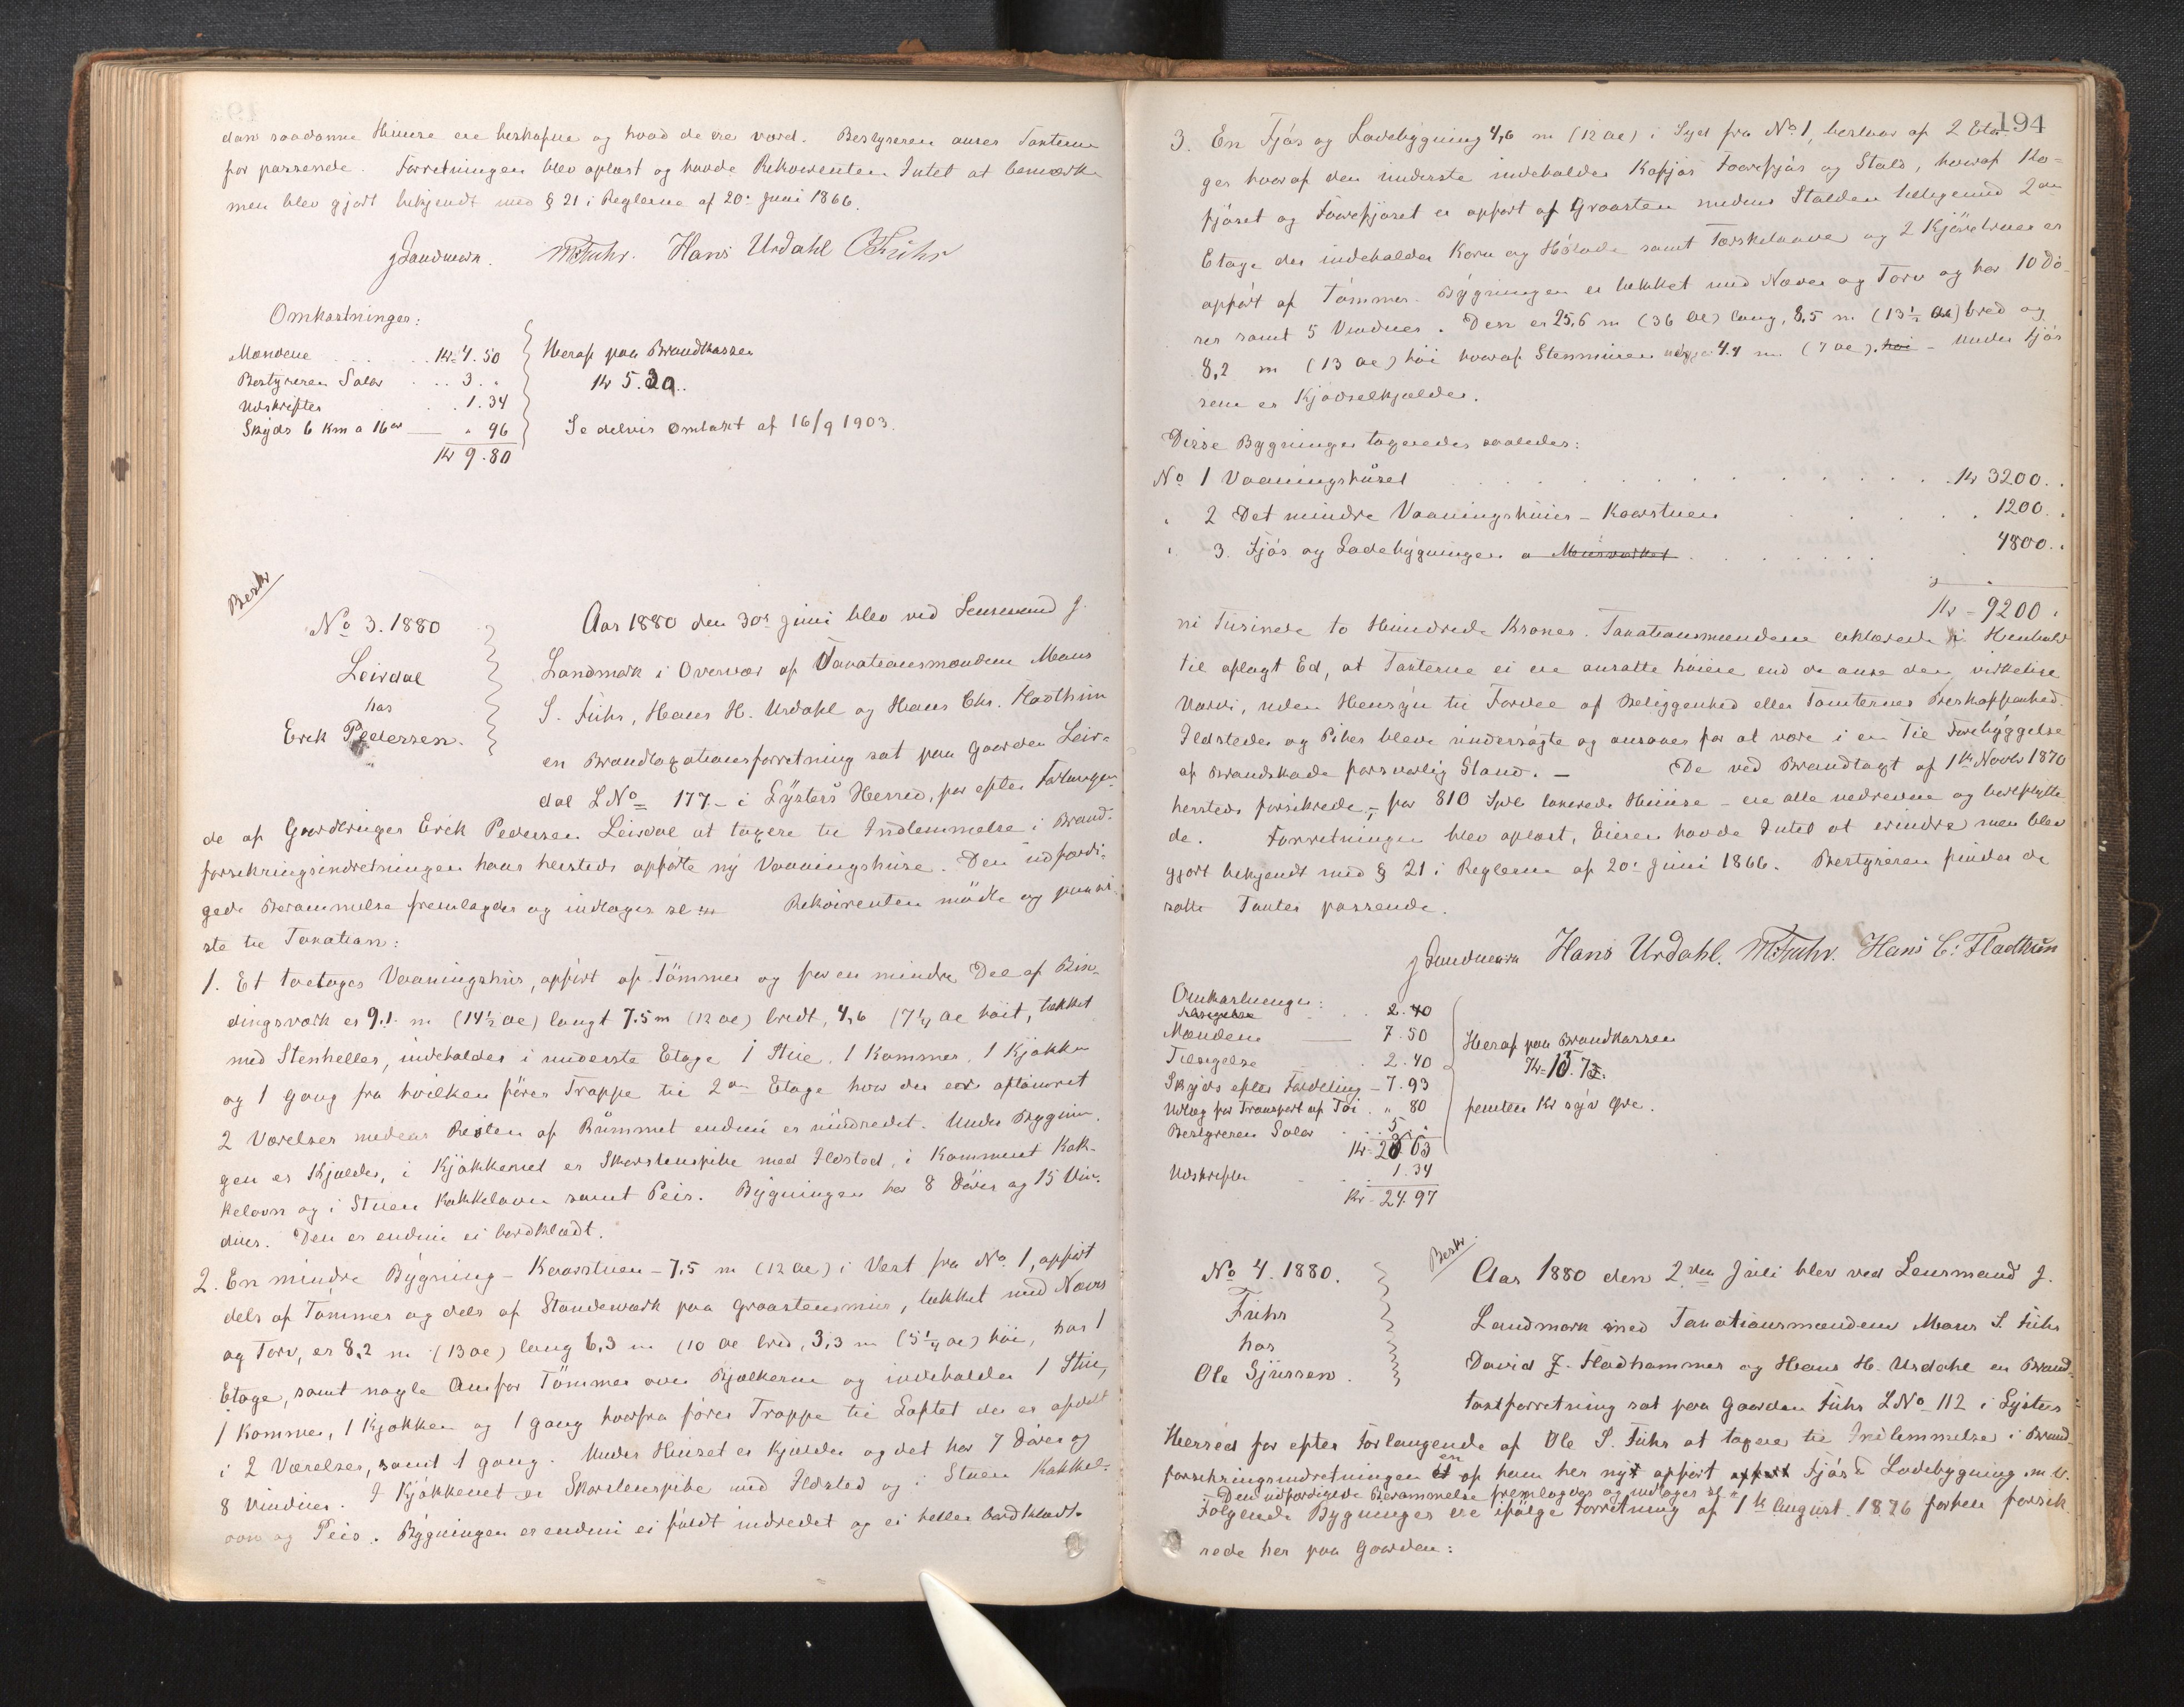 dan saadanne Huuse ere beskafne og hvad de ere værd. Bestyreren anser Taxterne
for passende. Forretningen blev oplæst og havde Rekvirenten Intet at bemærke
men blev gjort bekjendt med § 21 i Reglerne af 20de Juni 1866.
J Landmark. M Fuhr. Hans Urdahl O Fuhr
Omkostninger:
Mændene . . . . . Kr 4.50
Bestyreren Salær . . . 3. "
Udskrifter . . 1.34
Skyds 6 Km a 16 ør — " 96
Kr 9.80
Heraf paa Brandkassen
Kr 5.30.
Se delvis Omtaxt af 16/9 1903.
Beskr
No 3. 1880
Leirdal
hos
Erik Pedersen.
Aar 1880 den 30te Juni blev ved Lensmand J.
Landmark i Overvær af Taxationsmændene Mons
S. Fuhr, Hans H. Urdahl og Hans Chr. Fladthun
en Brandtaxationsforretning sat paa Gaarden Leir-
dal LNo 177 - i Lysters Herred, for efter Forlangen-
de af Gaardbruger Erik Pedersen Leirdal at taxere til Indlemmelse i Brand-
forsikringsindretningen hans hersteds opførte ny Vaaningshuse. Den udfærdi-
gede Berammelse fremlagdes og indtages sl Rekvirenten mødte og paavi-
ste til Taxation:
1. Et toetages Vaaningshus, opført af Tömmer og for en mindre Del af Bin-
dingsværk er 9.1 m (14½ Al) langt 7.5 m (12 Al) bredt, 4,6 (7¼ Al höit, tækket
med Stenheller, indeholder i underste Etage 1 Stue, 1 Kammer, 1 Kjøkken
og 1 Gang fra hvilken förer Trappe til 2den Etage hvor der er aftömret
2 Værelser medens Resten af Rummet endnu er uindredet. Under Bygnin-
gen er Kjælder, i Kjøkkenet er Skorstenspibe med Ildsted, i Kammeret Kak-
kelovn og i Stuen Kakkelovn samt Peis. Bygningen har 8 Döre og 15 Vin-
duer. Den er endnu ei bordklædt.
2. En mindre Bygning - Kaarstuen - 7,5 m (12 Al) i Vest fra No 1, opfört
dels af Tömmer og dels af Standeværk paa Graastensmur, tækket med Næver
og Torv, er 8,2 m (13 Al) lang 6,3 m (10 Al bred, 3,3 m (5¼ Al) höi, har 1
Etage, samt nogle Omfar Tömmer over Bjælkerne og indeholder 1 Stue,
1 Kammer, 1 Kjøkken og 1 Gang hvorfra förer Trappe til Loftet der er afdelt
i 2 Værelser, samt 1 Gang. Under Huuset er Kjælder og det har 7 Döre og
8 Vinduer. I Kjøkkenet er Skorstenspibe med Ildsted og i Stuen Kakkel-
ovn og Peis. Bygningen er endnu ei fuldt indredet og ei heller bordklædt.
194
3. En Fjös og Ladebygning 4,6 m (12 Al) i Syd fra No 1, bestaar af 2 Eta-
ger hvoraf den underste indeholder Kofjös Faarefjös og Stald, hvoraf Ko-
fjöset og Faarefjöset er opfört af Graasten medens Stalden tilligemed 2den
Etage der indeholder Korn og Hölade samt Tærskelaave og 2 Kjörebruer er
opfört af Tömmer. Bygningen er tækket med Næver og Torv og har 10 Dö-
rer samt 5 Vinduer. Den er 25,6 m (36 Al) lang, 8,5 m (13½ Al) bred og
8,2 m (13 Al) höi hvoraf Stenmuren udgjør 4.4 m (7 Al). höi - Under Fjös
sene er Kjødselkjælder.
Disse Bygninger taxeredes saaledes:
No 1 Vaaningshuset . . . . . . Kr 3200. "
" 2 Det mindre Vaaningshuus - Kaarstuen . . . . 1200. "
" 3. Fjös og Ladebygningen a Muurværket . . . . 4800. "
Kr - 9200 "
ni Tusinde to Hundrede Kroner. Taxationsmændene erklærede i Henhold
til aflagt Ed, at Taxterne ei ere ansatte höiere end de anse den virkelige
Værdi, uden Hensyn til Fordel af Beliggenhed eller Tomternes Beskaffenhed.
Ildsteder og Piber bleve undersøgte og ansaaes for at være i en til Forebyggelse
af Brandskade forsvarlig Stand. — De ved Brandtaxt af 1ste Novbr 1870
hersteds forsikrede, - for 810 Spdl taxerede Huuse - ere alle nedrevne og bortflytte-
de. Forretningen blev oplæst, Eieren havde Intet at erindre men blev
gjort bekjendt med § 21 i Reglerne af 20de Juni 1866. Bestyreren finder de
satte Taxter passende.
J Landmark Hans Urdahl. M Fuhr. Hans C. Fladthun
Omkostninger:
Tilsigelse . . 2.40
Mændene — 7.50
Tilsigelse . . 2.40
Skyds efter Fordeling - 7.93
Udlæg for Transport af Töi . " 80
Bestyreren Salær . . . 5. "
Kr - 23.63
Udskrifter . . 1.34
Kr - 24.97
Heraf paa Brandkassen
Kr - 15.7
femten Kr syv Øre.
No 4. 1880.
Fuhr
hos
Ole Sjursen.
Beskr
Aar 1880 den 2den Juli blev ved Lensmand J.
Landmark med Taxationsmændene Mons S. Fuhr
David J. Fladhammer og Hans H. Urdahl en Brand-
taxtforretning sat paa Gaarden Fuhr LNo 112 i Lysters
Herred for efter Forlangende af Ole S. Fuhr at taxere til Indlemmelse i Brand-
forsikringsindretningen et en af ham her nyt opfört opfört Fjös & Ladebygning m. v.
Den udfærdigede Berammelse fremlagdes og indtages sl
Følgende Bygninger ere ifölge Forretning af 1ste August 1876 forhen forsik-
rede her paa Gaarden: